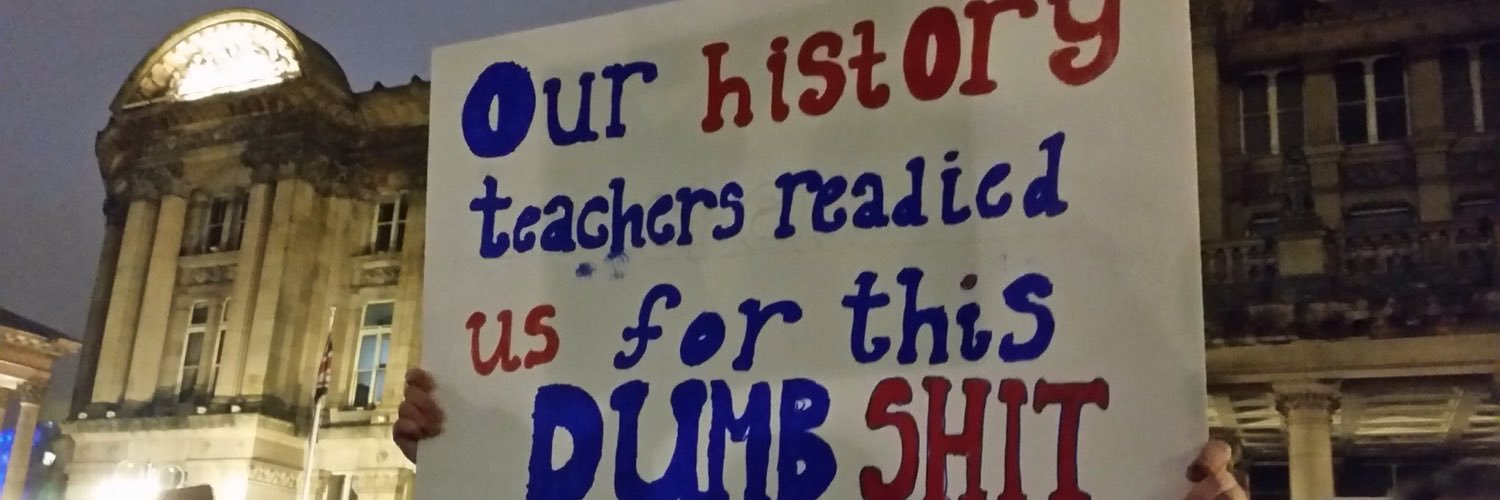 Our history
teachers readied
us for this
DUMB SHIT